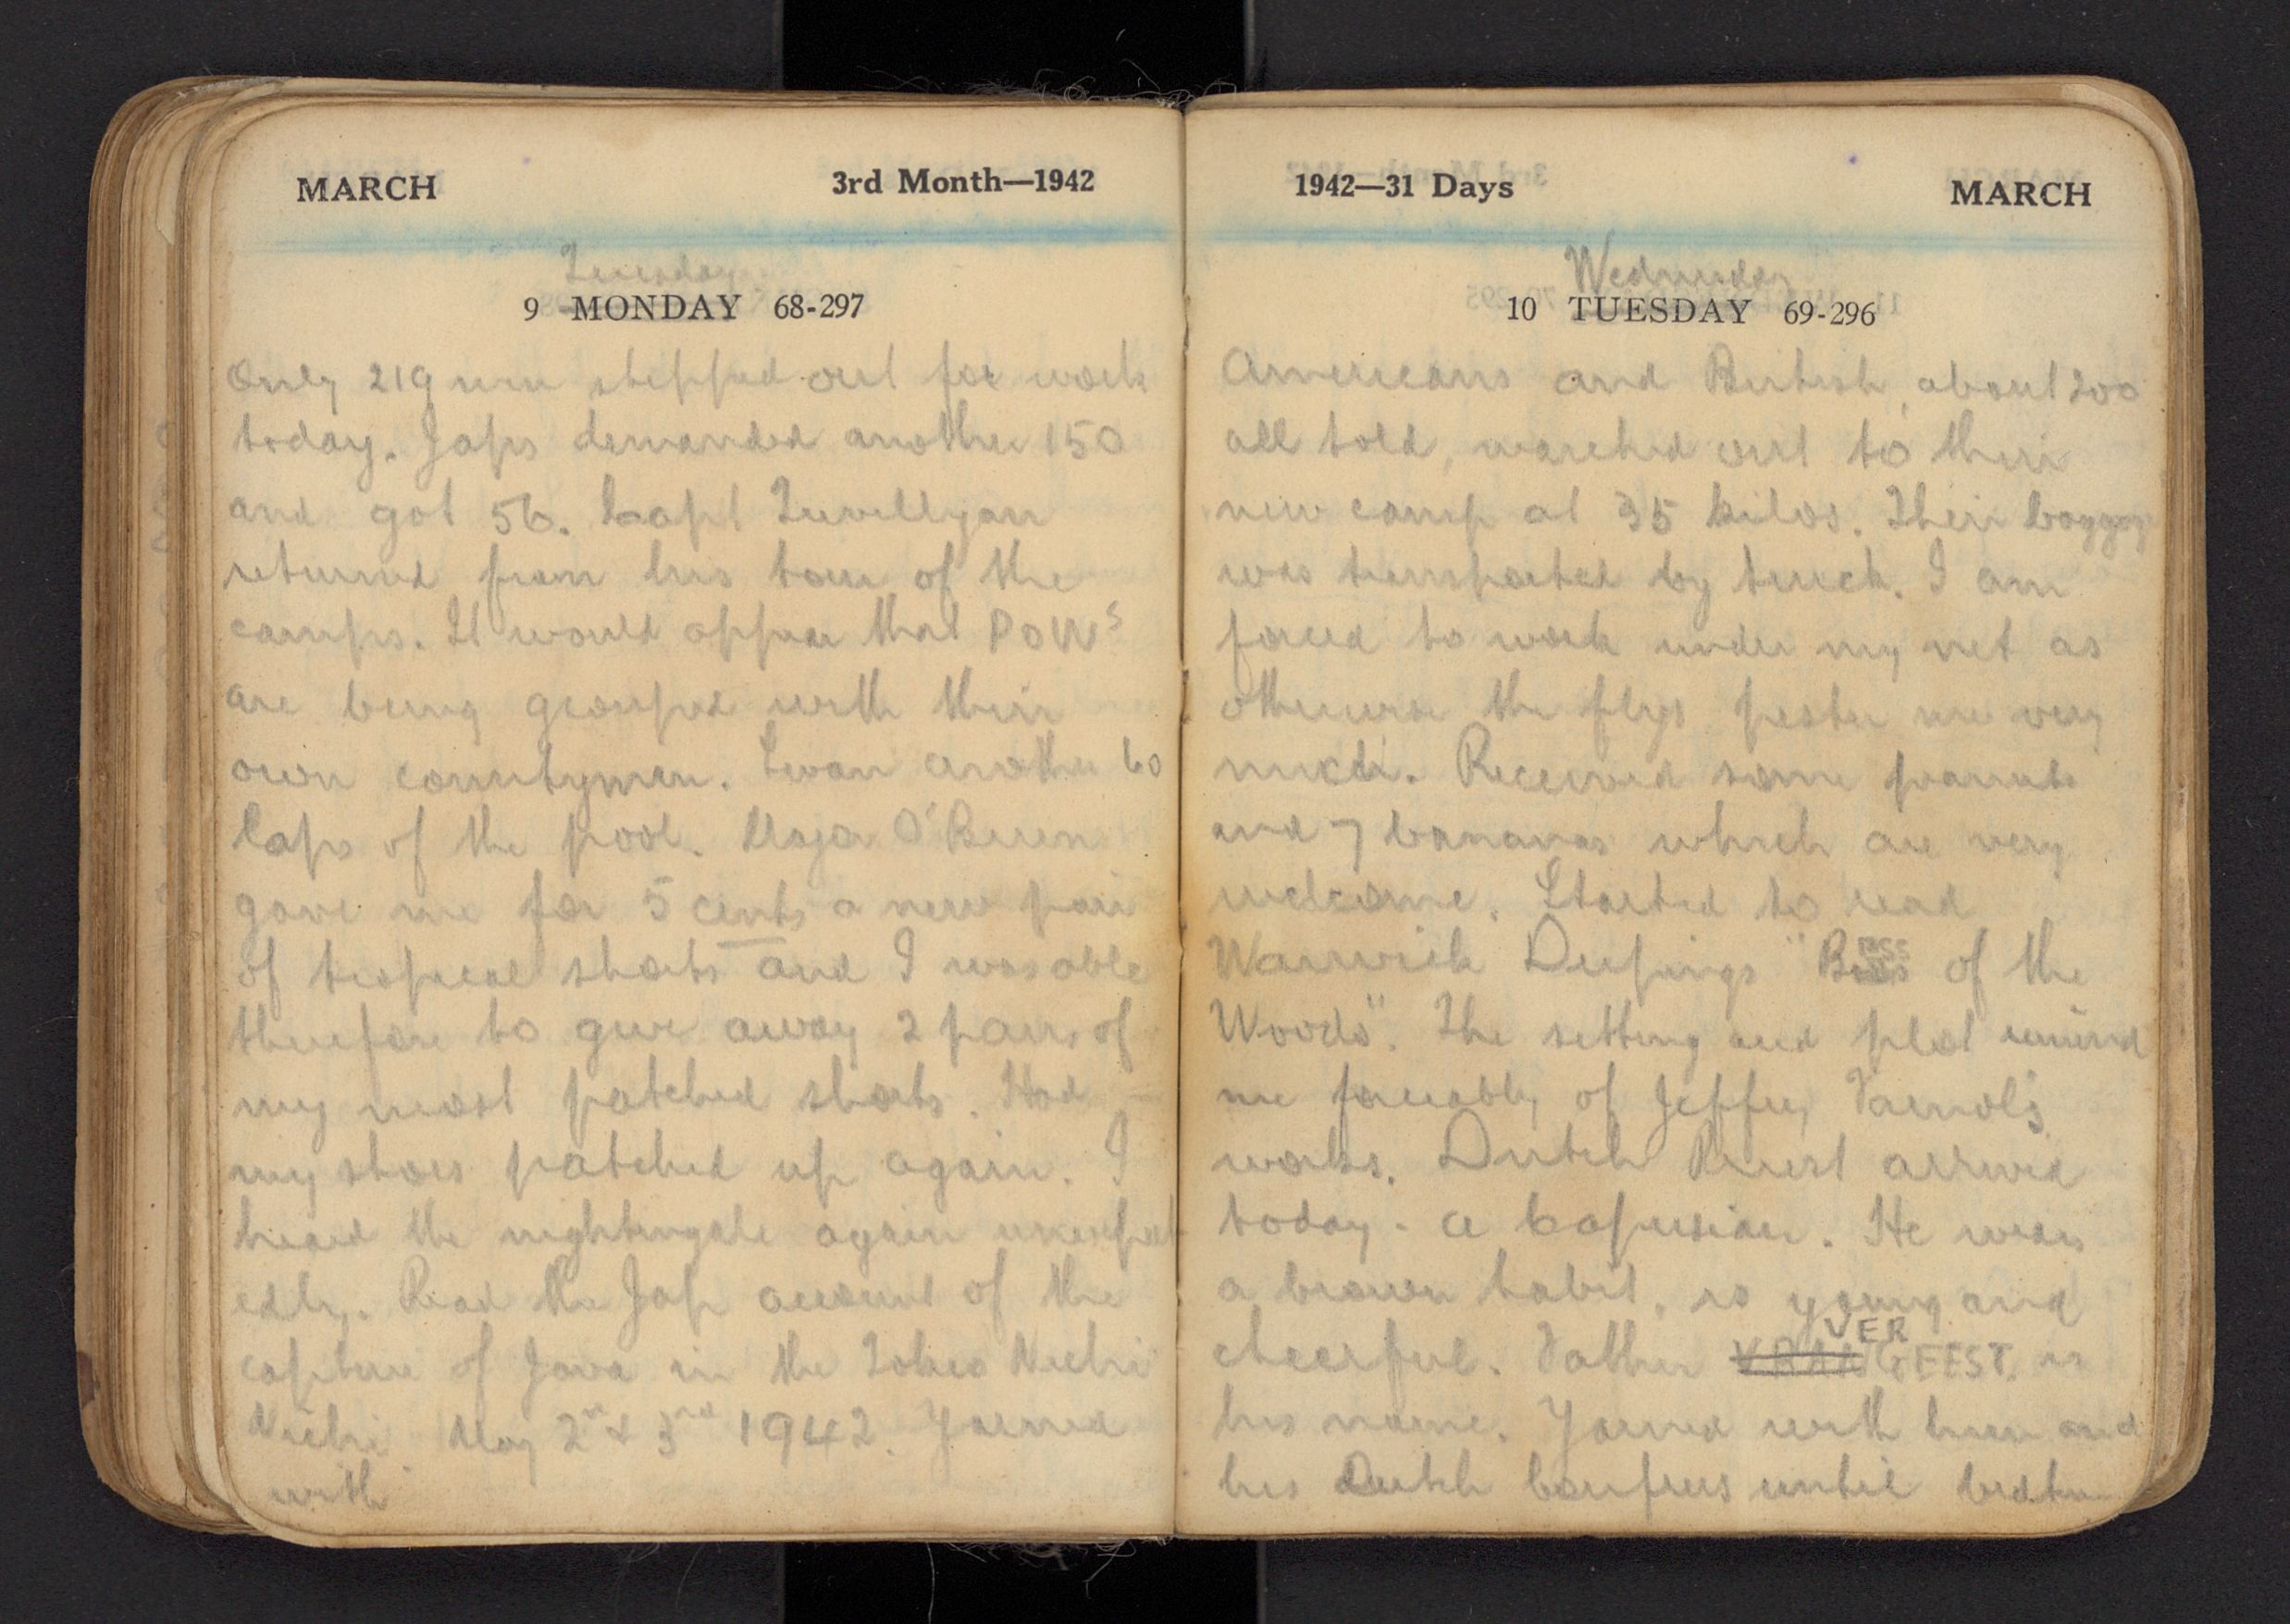 MARCH 3rd Month—1942
Tuesday
9 MONDAY 68-297
Only 219 men stepped out for work
today. Japs demanded another 150
and got 56. Capt Trevellyan
returned from his tour of the
camps. It would appear that POWs
are being grouped with their
own countrymen. Swam another 60
laps of the pool. Major O'Brien
gave me for 5 cents a new pair
of tropical shorts and I was able
therefore to give away 2 pairs of
my most patched shorts. Had
my shoes patched up again. I
heard the nightingale again unexpect
edly. Read the Jap account of the
capture of Java in the Tokio Nichi
Nichi May 2nd & 3rd 1942. Yarned
with
1942—31 Days MARCH
Wednesday
10 TUESDAY 69-296
Americans and British, about 200
all told, marched out to their
new camp at 35 kilos. Their baggage
was transported by truck. I am
forced to work under my net as
otherwise the flys pester me very
much. Received some peanuts
and 7 bananas which are very
welcome. Started to read
Warwick Deepings "Bess of the
Woods". The setting and plot remind
me forcibly of Jeffery Farnol's
works. Dutch Priest arrived
today - a Capucian. He wears
a brown habit, is young and
cheerful. Father VER GEEST is
his name. Yarned with him and
his Dutch confreres until bedtime